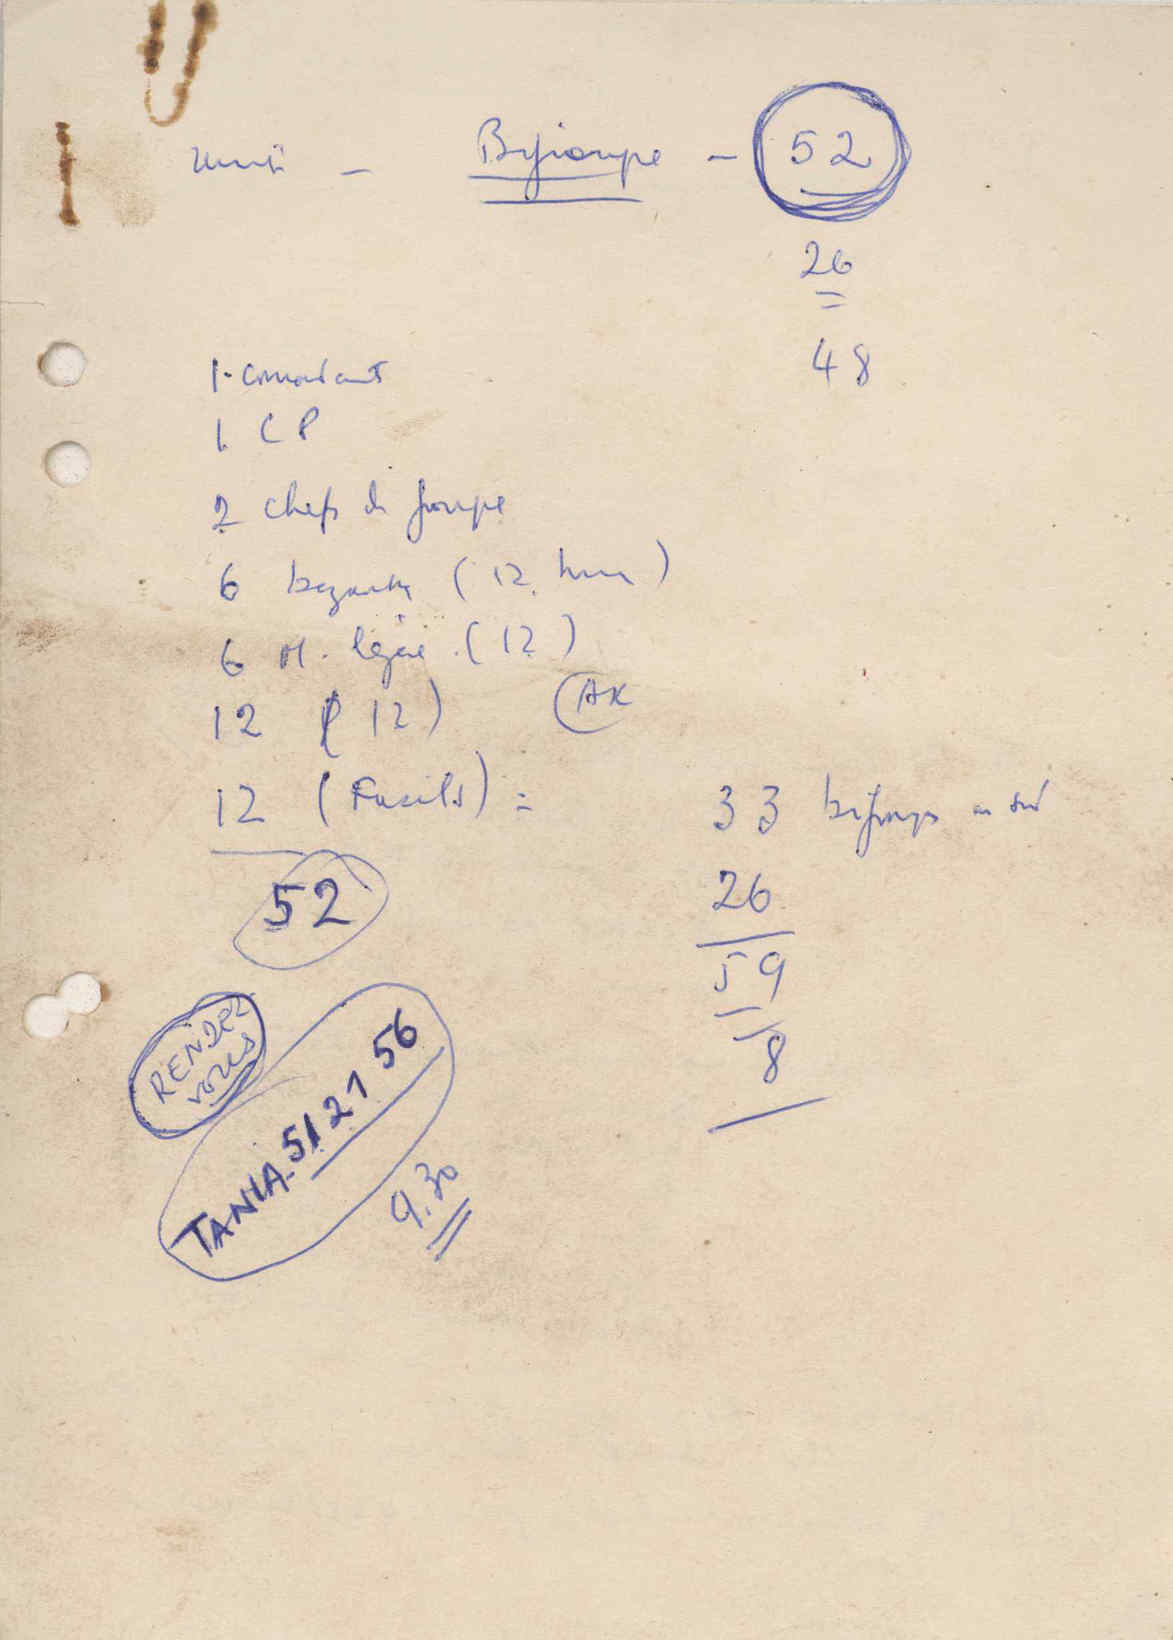 unité - Bigroupe - 52
26
48
1. Comandant
1 CP
2 chefs de groupe
6 bazooka (12 hom)
6 M. légère (12)
12 (12) AK
12 (Fusils) =
52
33 bigroups au sud
26
59
8
RENDEZ
VOUS
TANIA. 51 21 56
9.30